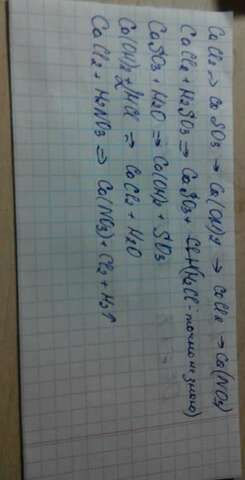 CaCl2 → CaSO3 → Ca(OH)2 → CaCl2 → Ca(NO3)
CaCl2 + H2SO3 ⇒ CaSO3 + ClH (H2Cl - точно не знаю)
CaSO3 + H2O ⇒ Ca(OH)2 + SO3
Ca(OH)2 + HCl ⇒ CaCl2 + H2O
CaCl2 + H2NO3 ⇒ Ca(NO3) + Cl2 + H2↑